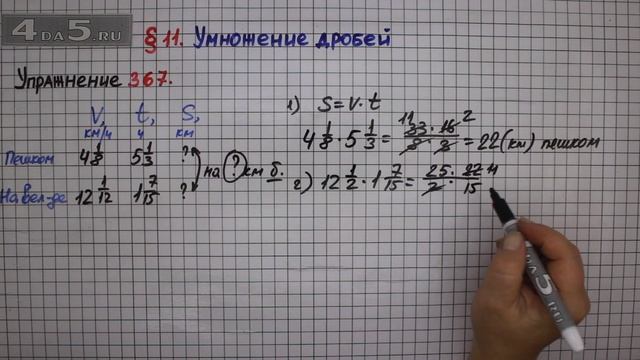 4DA5.RU
§ 11. Умножение дробей
Упражнение 367.
V, t, S,
км/ч ч км
Пешком 4 1/8 5 1/3 ?
На вел-де 12 1/12 1 7/15 ?
на ? км б.
1) S=V·t
4 1/8 · 5 1/3 = 33·16/8·3 = 22 (км) пешком
11 2
2) 12 1/2 · 1 7/15 = 25·22/2·15
11